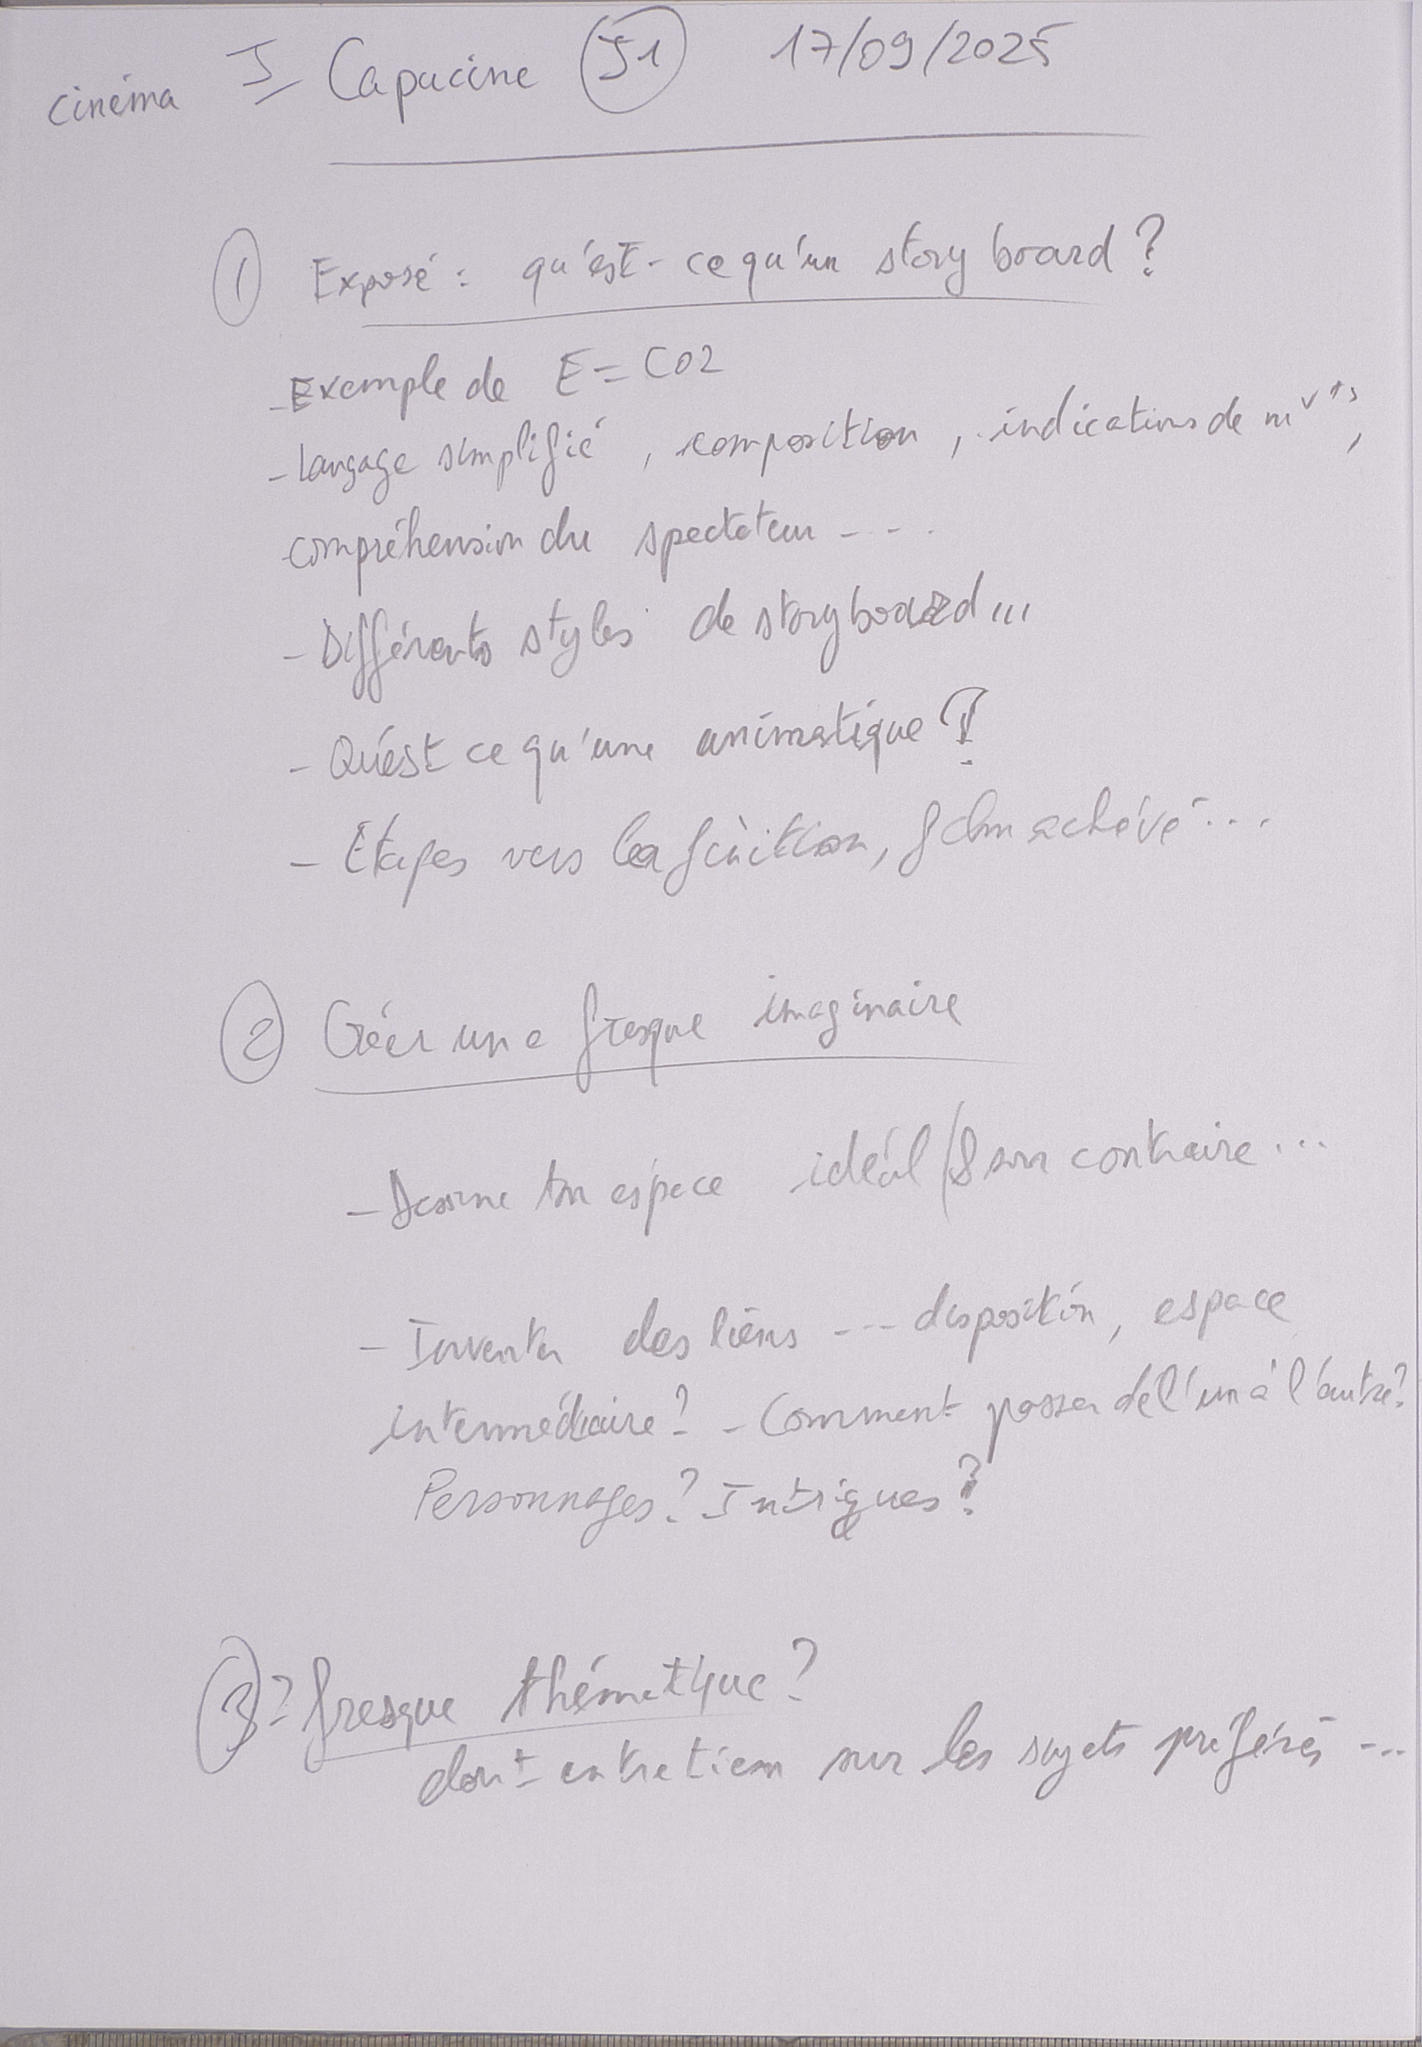 cinéma I- Capucine J1 17/09/2025
① Exposé : qu'est-ce qu'un story board ?
- Exemple de E = CO2
- langage simplifié, composition, indications de mvts,
compréhension du spectateur - - - .
- Différents styles de storyboard...
- Qu'est ce qu'une animatique ?
- Etapes vers la finition, film achevé...
② Créer une fresque imaginaire
- Dessine ton espace idéal / & son contraire...
- Inventer des liens --- disposition, espace
intermédiaire ? - Comment passer de l'un à l'autre ?
Personnages ? Intrigues ?
③ ? fresque thématique ?
dont entretien sur les sujets préférés ---